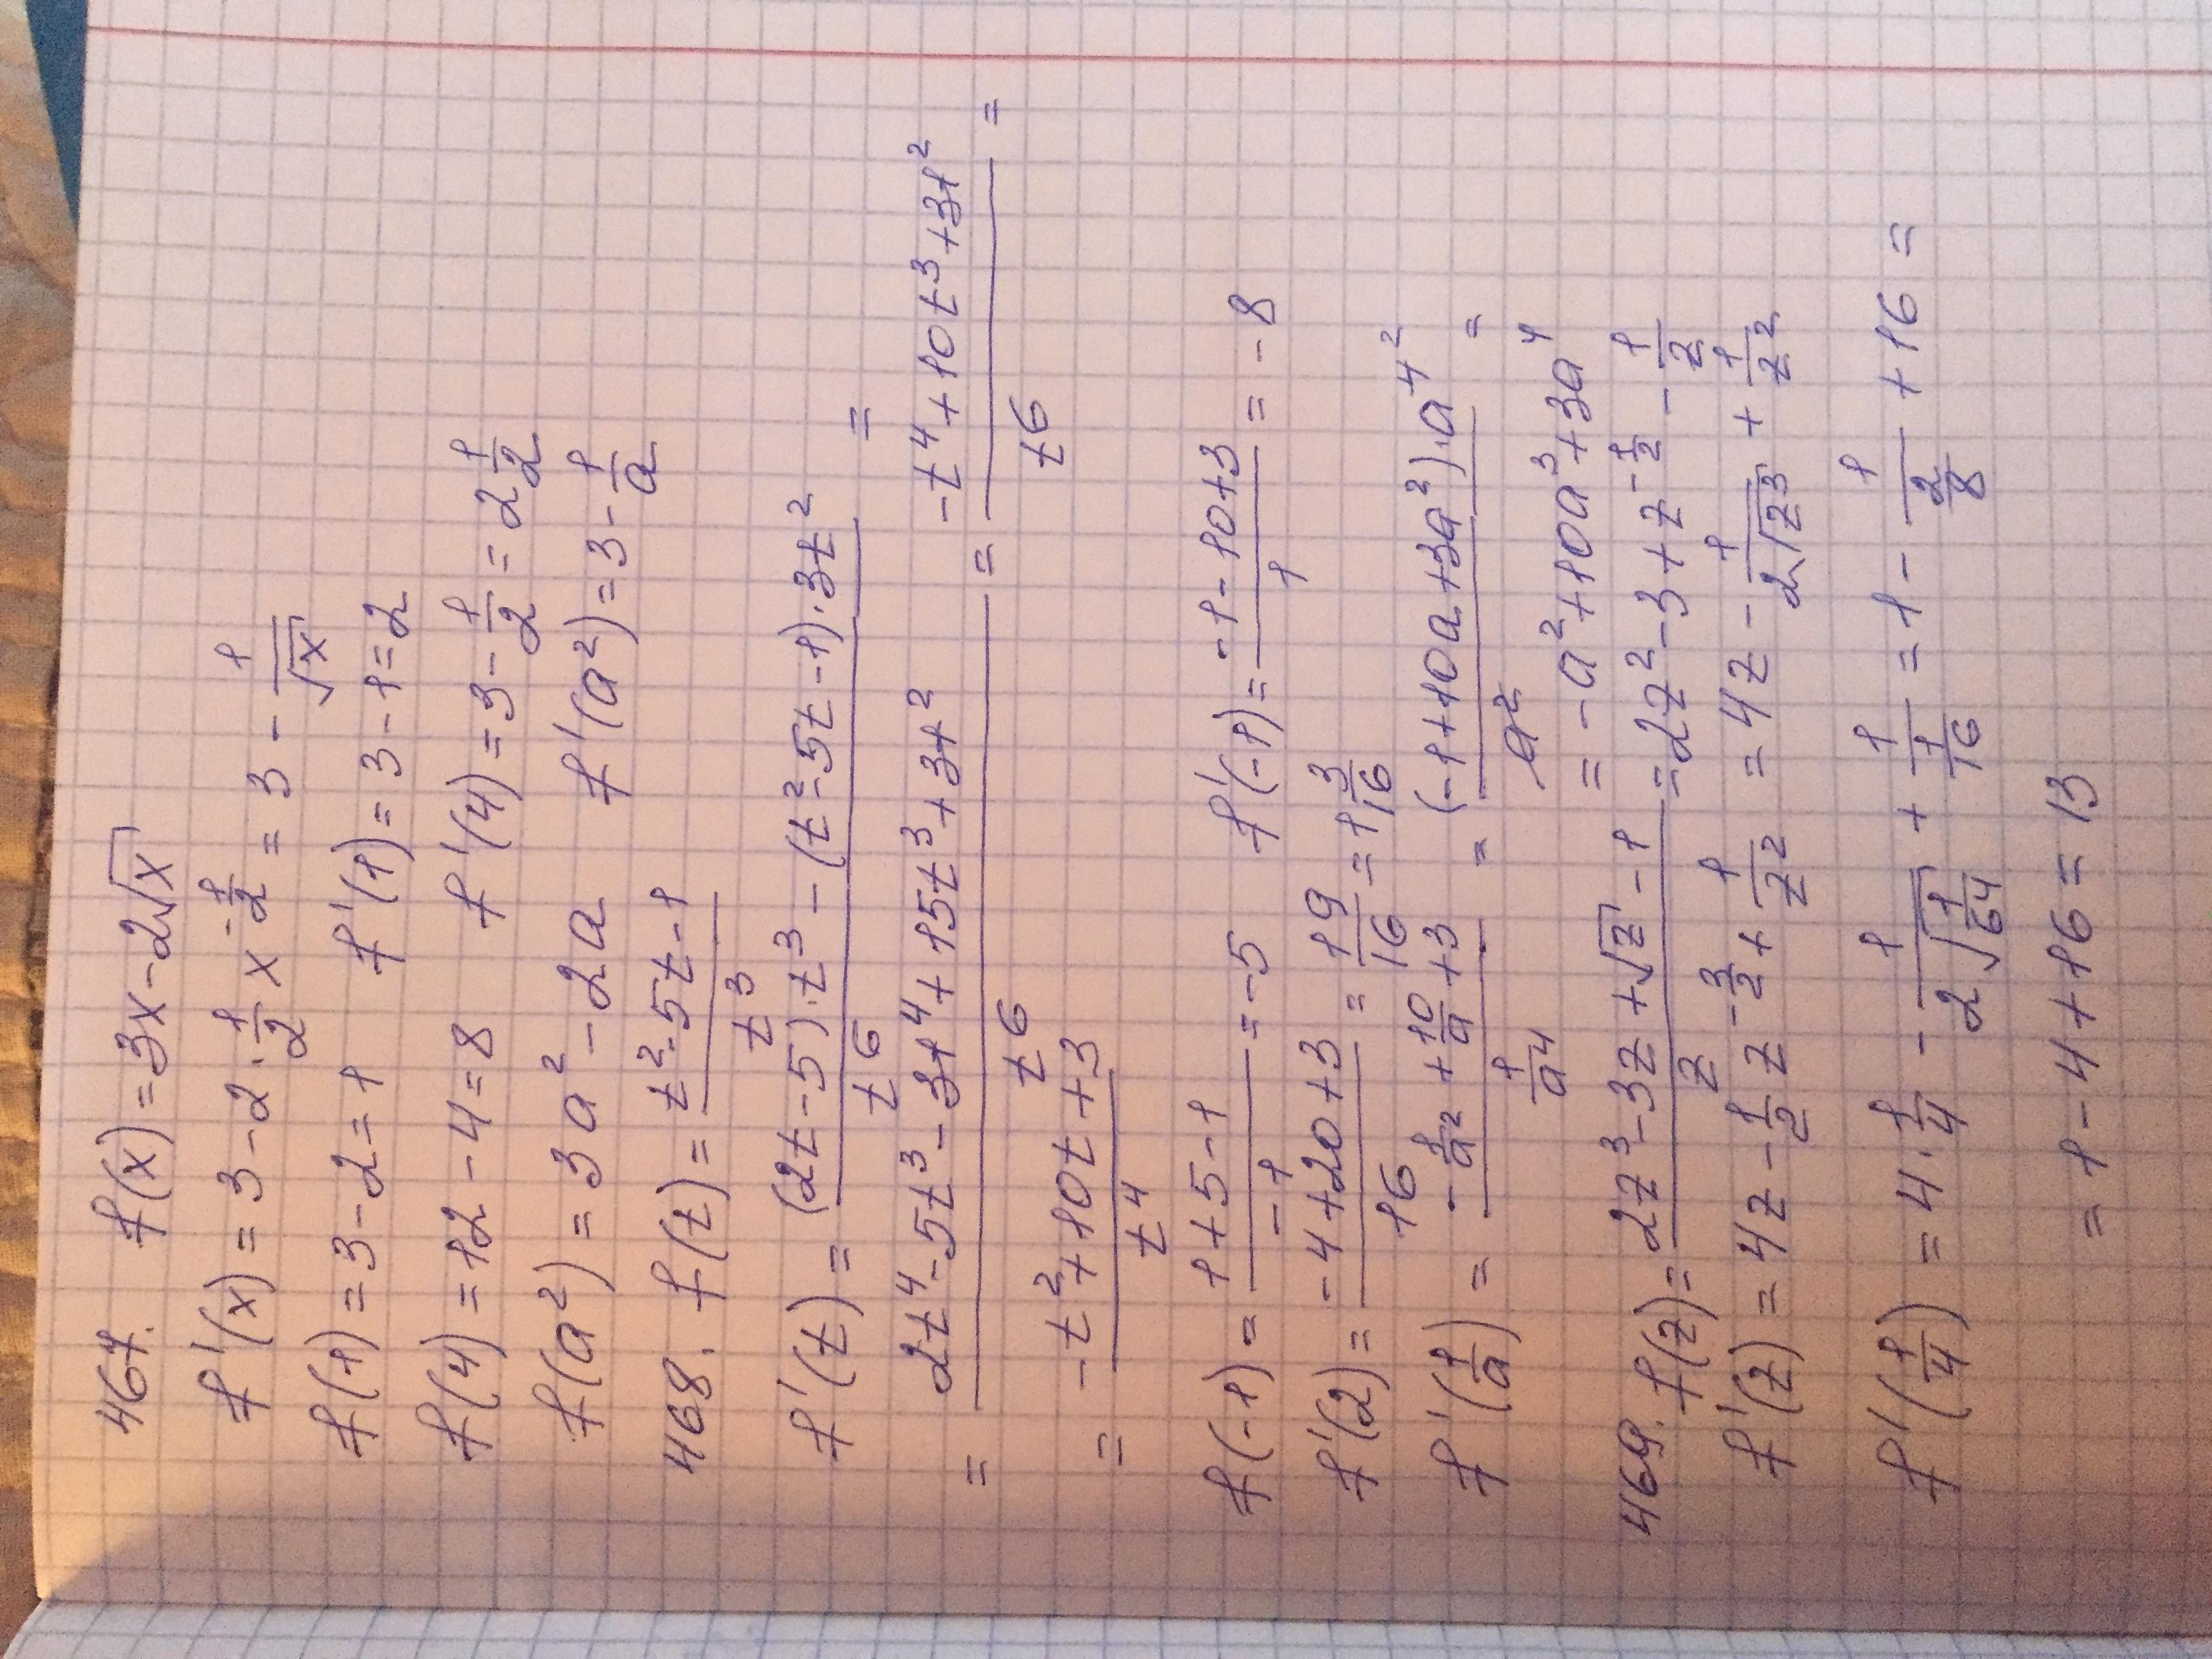 467. f(x)=3x-2√x
f'(x)=3-2·1/2 x^(-1/2) = 3 - 1/√x
f(1)=3-2=1 f'(1)=3-1=2
f(4)=12-4=8 f'(4)=3-1/2=2 1/2
f(a²)=3a²-2a f'(a²)=3-1/a
468. f(t)=(t²-5t-1)/t³
f'(t)=((2t-5)·t³-(t²-5t-1)·3t²)/t⁶ =
= (2t⁴-5t³-3t⁴+15t³+3t²)/t⁶ = (-t⁴+10t³+3t²)/t⁶ =
= (-t²+10t+3)/t⁴
f(-1)=(1+5-1)/(-1)=-5 f'(-1)=(-1-10+3)/1=-8
f'(2)=(-4+20+3)/16=19/16=1 3/16
f'(1/a)=(-1/a²+10/a+3)/(1/a⁴)=((-1+10a+3a²)·a⁴²)/a²=
=-a²+10a³+3a⁴
469. f(z)=(2z³-3z+√z-1)/z=2z²-3+z^(-1/2)-1/z
f'(z)=4z-1/2 z^(-3/2)+1/z²=4z-1/(2√z³)+1/z²
f'(1/4)=4·1/4-1/(2√(1/64))+1/(1/16)=1-1/(2/8)+16=
=1-4+16=13